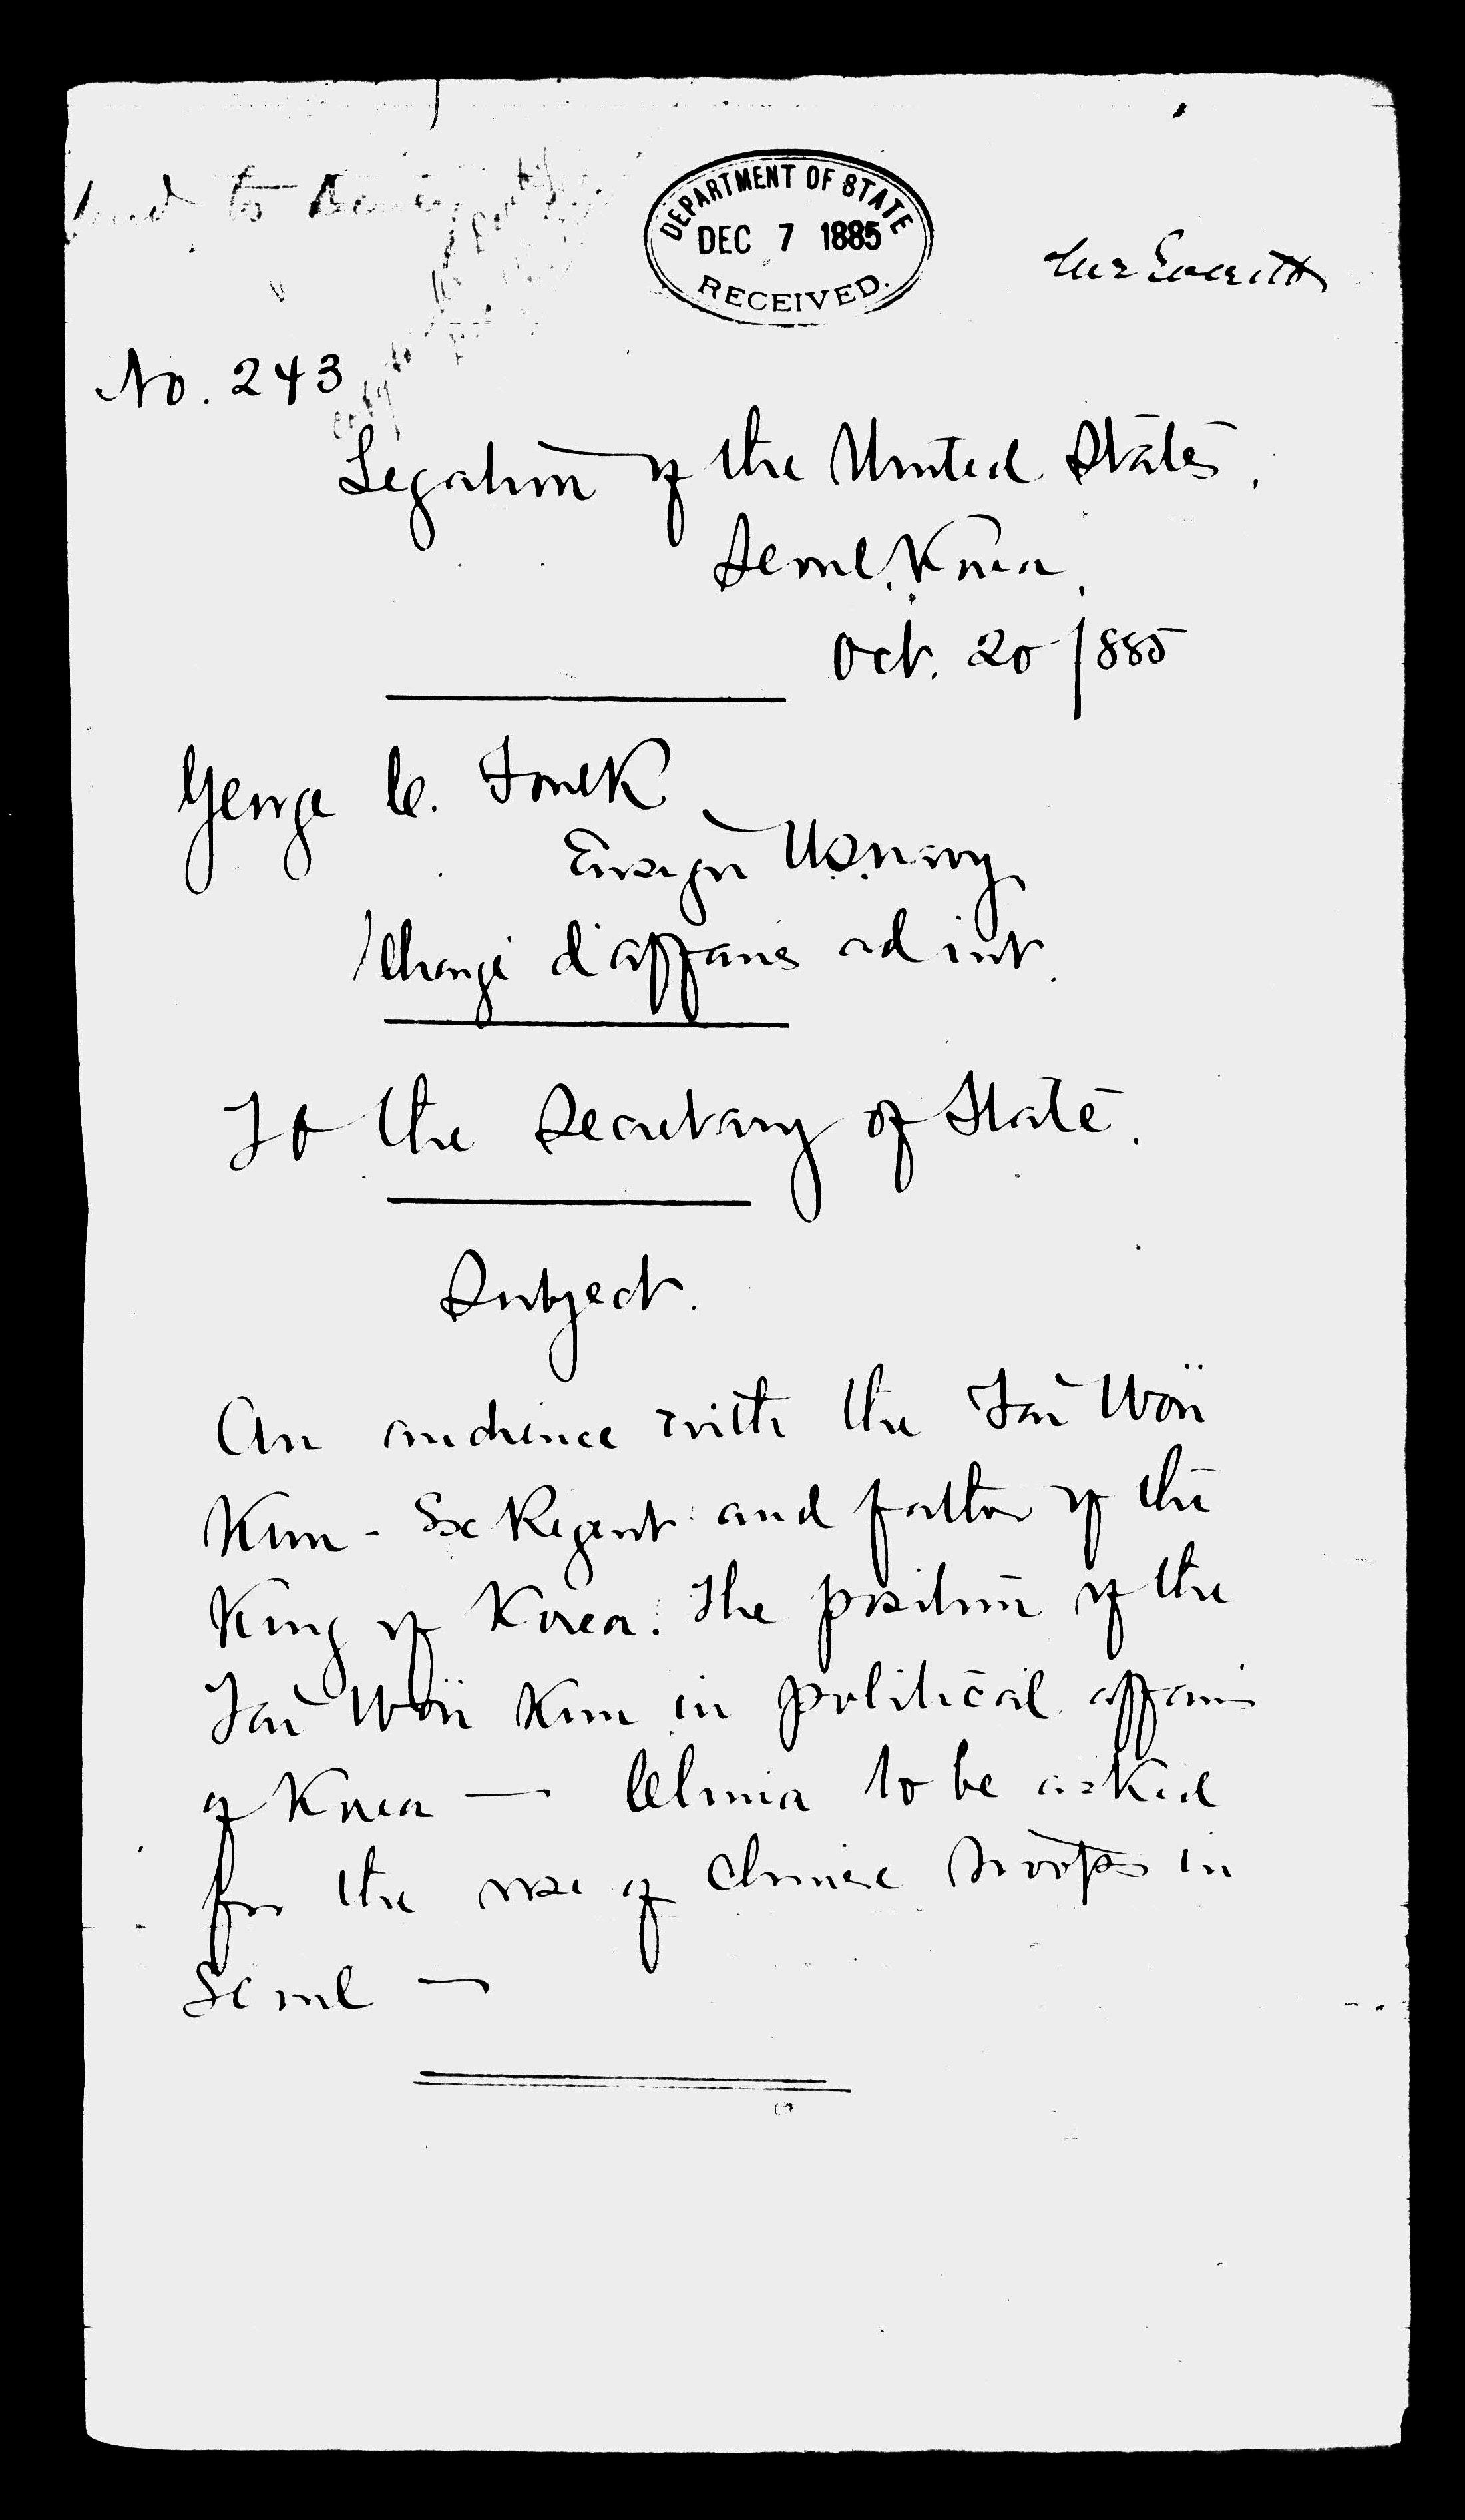 DEPARTMENT OF STATE
DEC 7 1885
RECEIVED.
Mr Everitt
No. 243
Legation of the United States.
Seoul, Korea.
Oct. 20 1885
George C. Foulk
Ensign U.S. Navy
Chargé d'affaires ad int.
To the Secretary of State.
Subject.
An audience with the Tai Wön
Kun - Ex Regent and father of the
King of Korea. The position of the
Tai Wön Kun in political affairs
of Korea — China to be asked
for the use of Chinese troops in
Seoul —